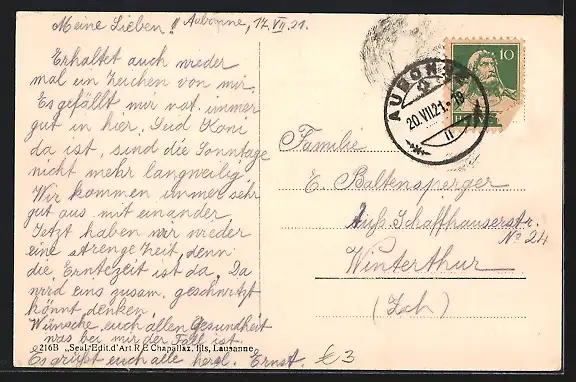 Meine Lieben!! Aubonne, 17. VII. 21.
Erhaltet auch wieder
mal ein Zeichen von mir.
Es gefällt mir nat. immer
gut in hier, Seid Koni
da ist, sind die Sonntage
nicht mehr langweilig.
Wir kommen immer sehr
gut aus mit einander.
Jetzt haben wir wieder
eine strenge Zeit, denn
die Erntezeit ist da. Da
wird eins zusam. geschwitzt
könnt denken.
Wünsche euch allen Gesundheit
was bei mir der Fall ist.
Es grüßt euch alle herzl. Ernst.
216B „Seal" Edit. d'Art R E Chapallaz, fils, Lausanne
10
AUBONNE
20.VII.21.-18
II
Familie
E. Baltensperger
Äuß. Schaffhauserstr.
No 24
Winterthur
(Zch)
€3